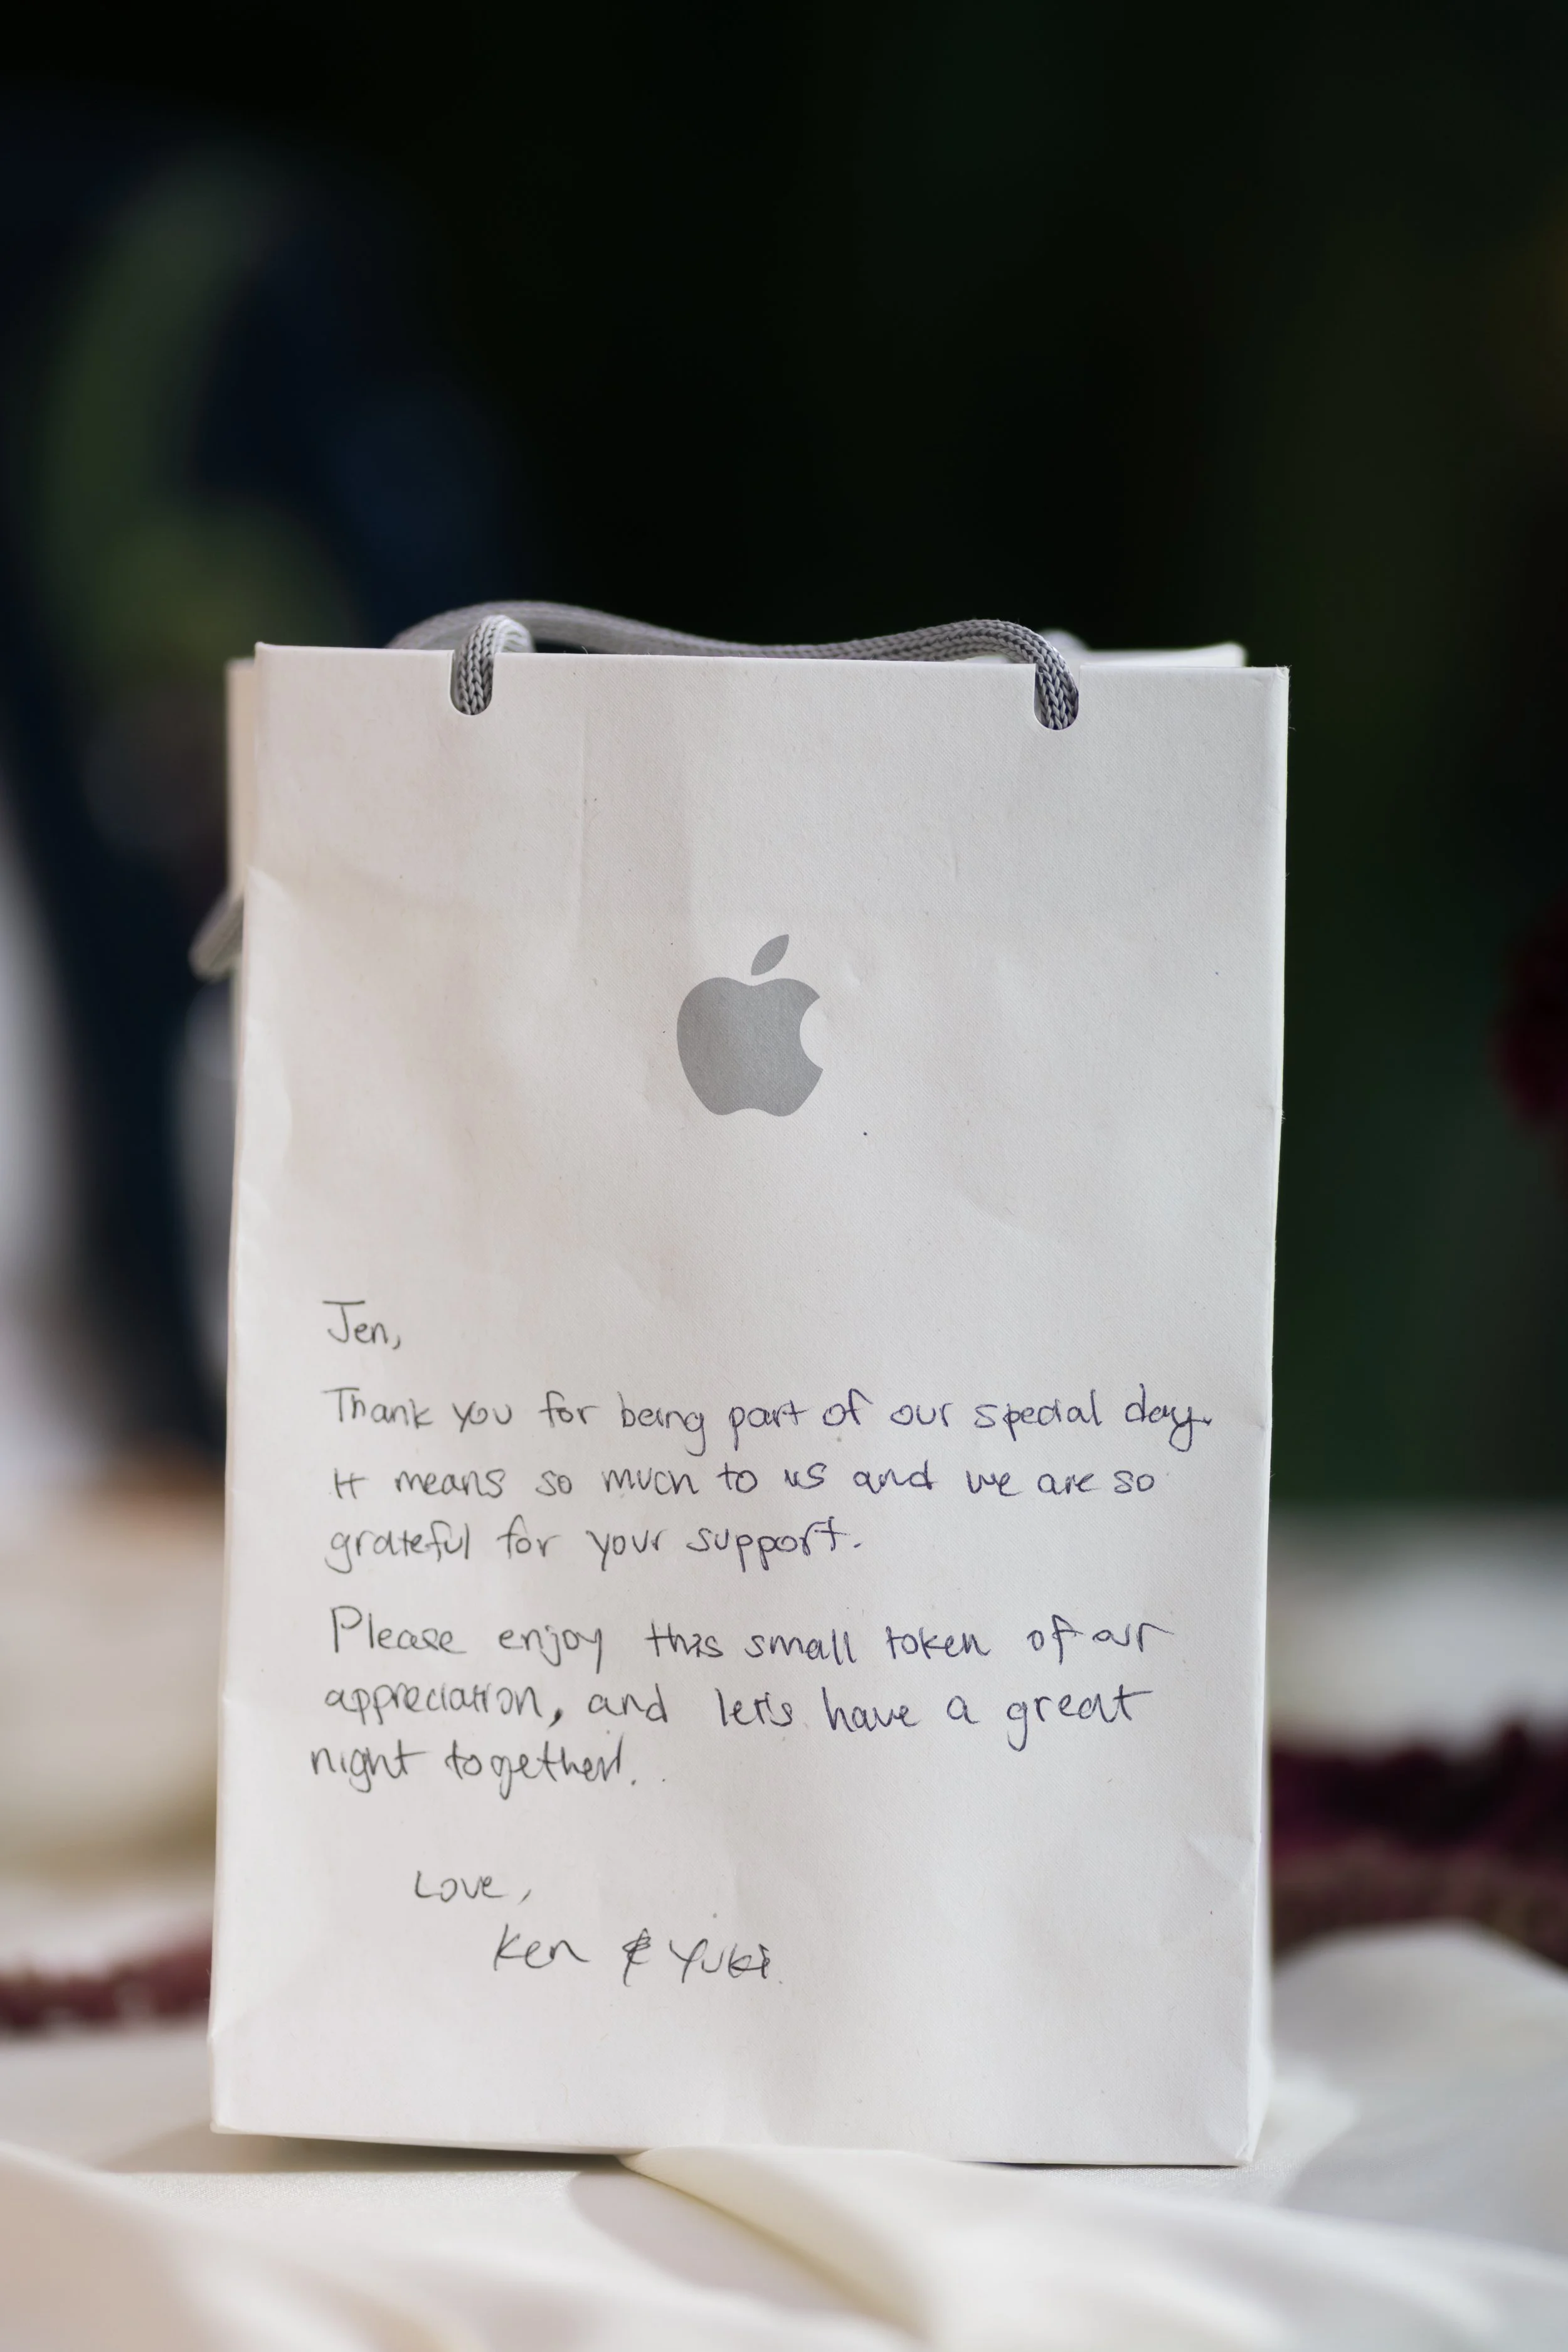 Jen,
Thank you for being part of our special day.
It means so much to us and we are so
grateful for your support.
Please enjoy this small token of our
appreciation, and let's have a great
night together!
Love,
Ken & Yuki